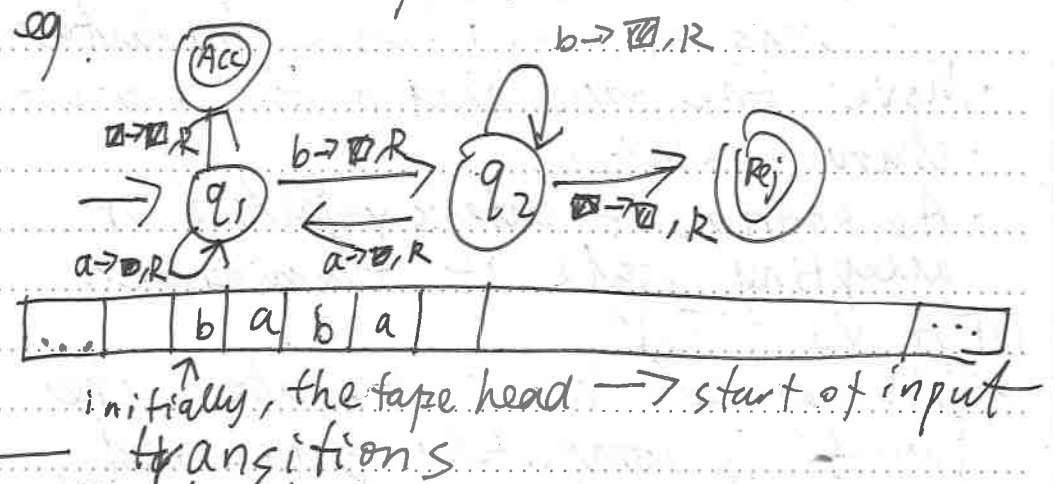 eg.
Acc
b→▨, R
▨→▨, R
b→▨, R
q1
q2
Rej
▨→▨, R
a→▨, R
a→▨, R
... b a b a ...
↑
initially, the tape head → start of input
— transitions